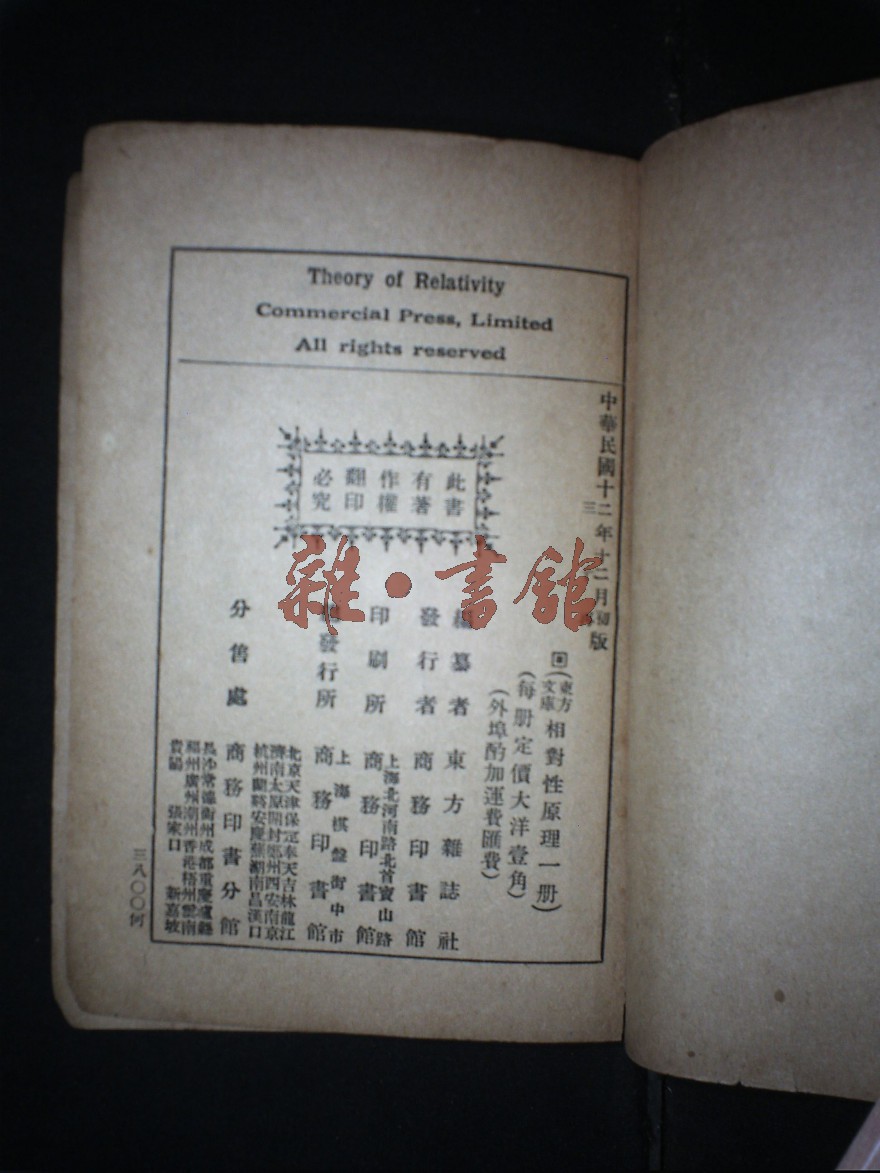 Theory of Relativity
Commercial Press, Limited
All rights reserved
中華民國十二年十二月初版
三
此書
有著
作權
翻印
必究
東方
文庫
相對性原理一册
(每册定價大洋壹角)
(外埠酌加運費匯費)
編纂者 東方雜誌社
發行者 商務印書館
印刷所 上海北河南路北首寶山路
商務印書館
發行所 上海棋盤街中市
商務印書館
分售處 商務印書分館
北京天津保定奉天吉林龍江
濟南太原開封鄭州西安南京
杭州蘭谿安慶蕪湖南昌漢口
長沙常德衡州成都重慶瀘縣
福州廣州潮州香港梧州雲南
貴陽 張家口 新嘉坡
三八〇〇何
雜·書館